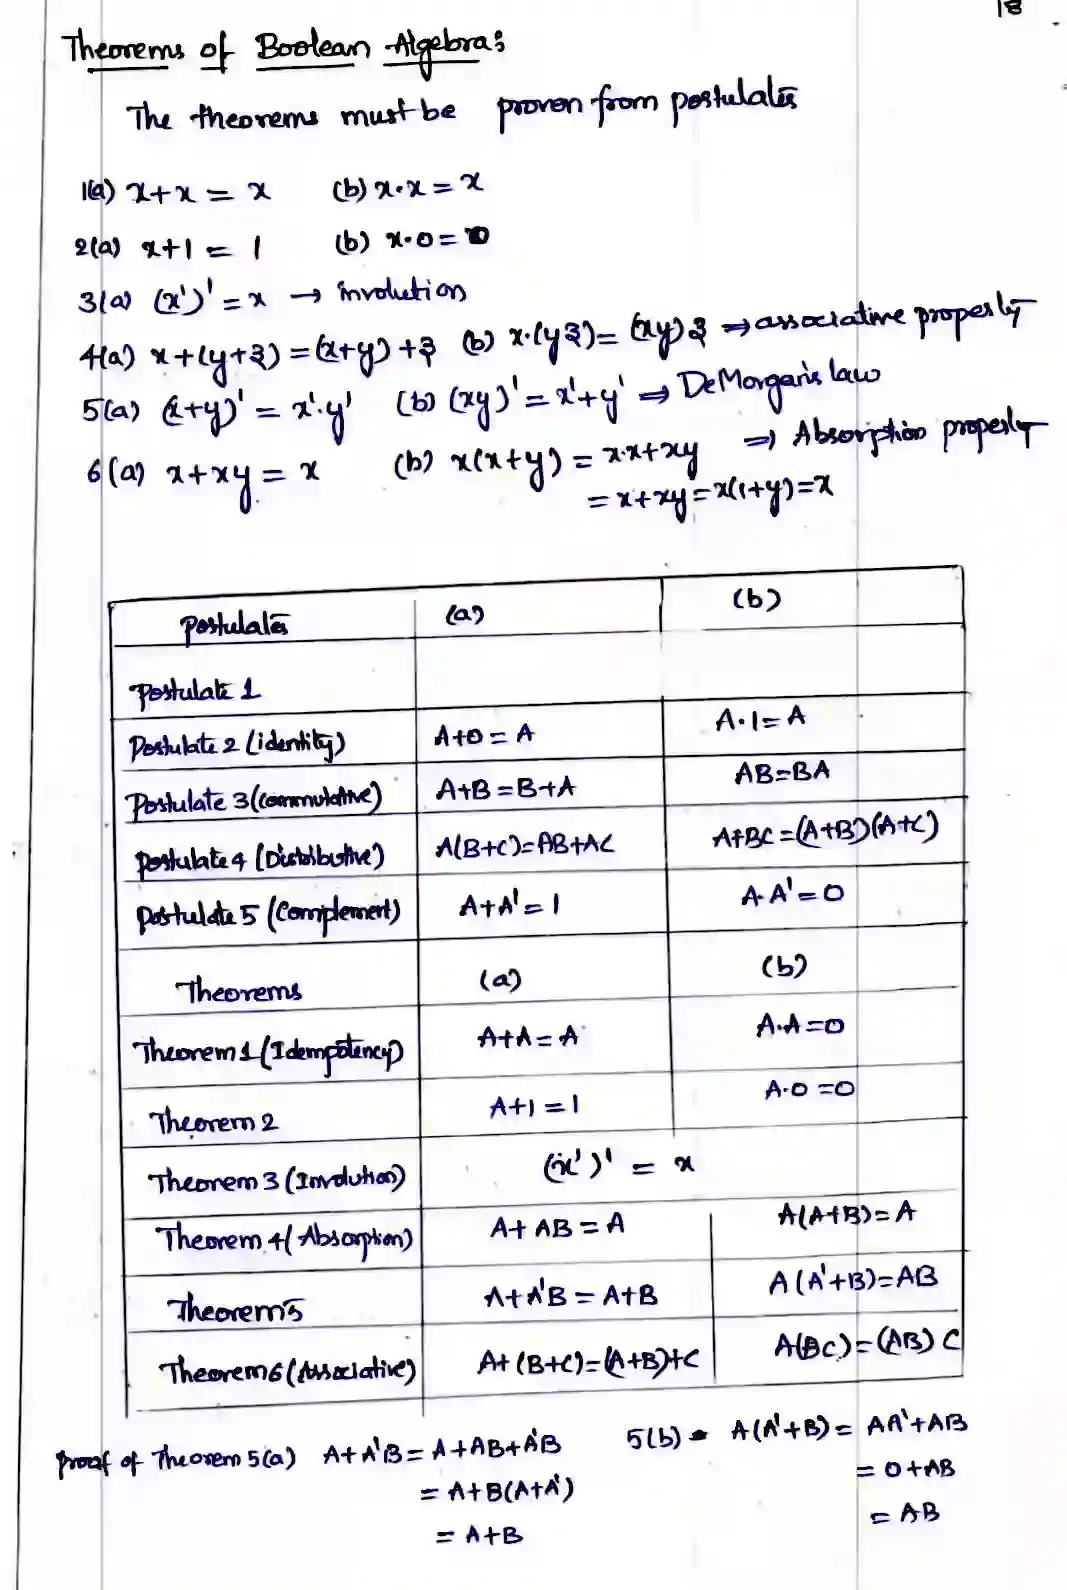 18
Theorems of Boolean Algebra:
The theorems must be proven from postulates
1(a) x+x = x (b) x·x = x
2(a) x+1 = 1 (b) x·0 = 0
3(a) (x')' = x → involution
4(a) x+(y+z) = (x+y)+z (b) x·(yz) = (xy)z ⇒ associative property
5(a) (x+y)' = x'·y' (b) (xy)' = x'+y' ⇒ DeMorgan's law
6(a) x+xy = x (b) x(x+y) = x·x+xy ⇒ Absorption property
= x+xy = x(1+y) = x
Postulates (a) (b)
Postulate 1
Postulate 2 (identity) A+0 = A A·1 = A
Postulate 3 (commutative) A+B = B+A AB = BA
Postulate 4 (Distributive) A(B+C) = AB+AC A+BC = (A+B)(A+C)
Postulate 5 (Complement) A+A' = 1 A·A' = 0
Theorems (a) (b)
Theorem 1 (Idempotency) A+A = A A·A = 0
Theorem 2 A+1 = 1 A·0 = 0
Theorem 3 (Involution) (x')' = x
Theorem 4 (Absorption) A+AB = A A(A+B) = A
Theorem 5 A+A'B = A+B A(A'+B) = AB
Theorem 6 (Associative) A+(B+C) = (A+B)+C A(BC) = (AB)C
Proof of Theorem 5(a) A+A'B = A+AB+A'B 5(b) A(A'+B) = AA'+AB
= A+B(A+A') = 0+AB
= A+B = AB